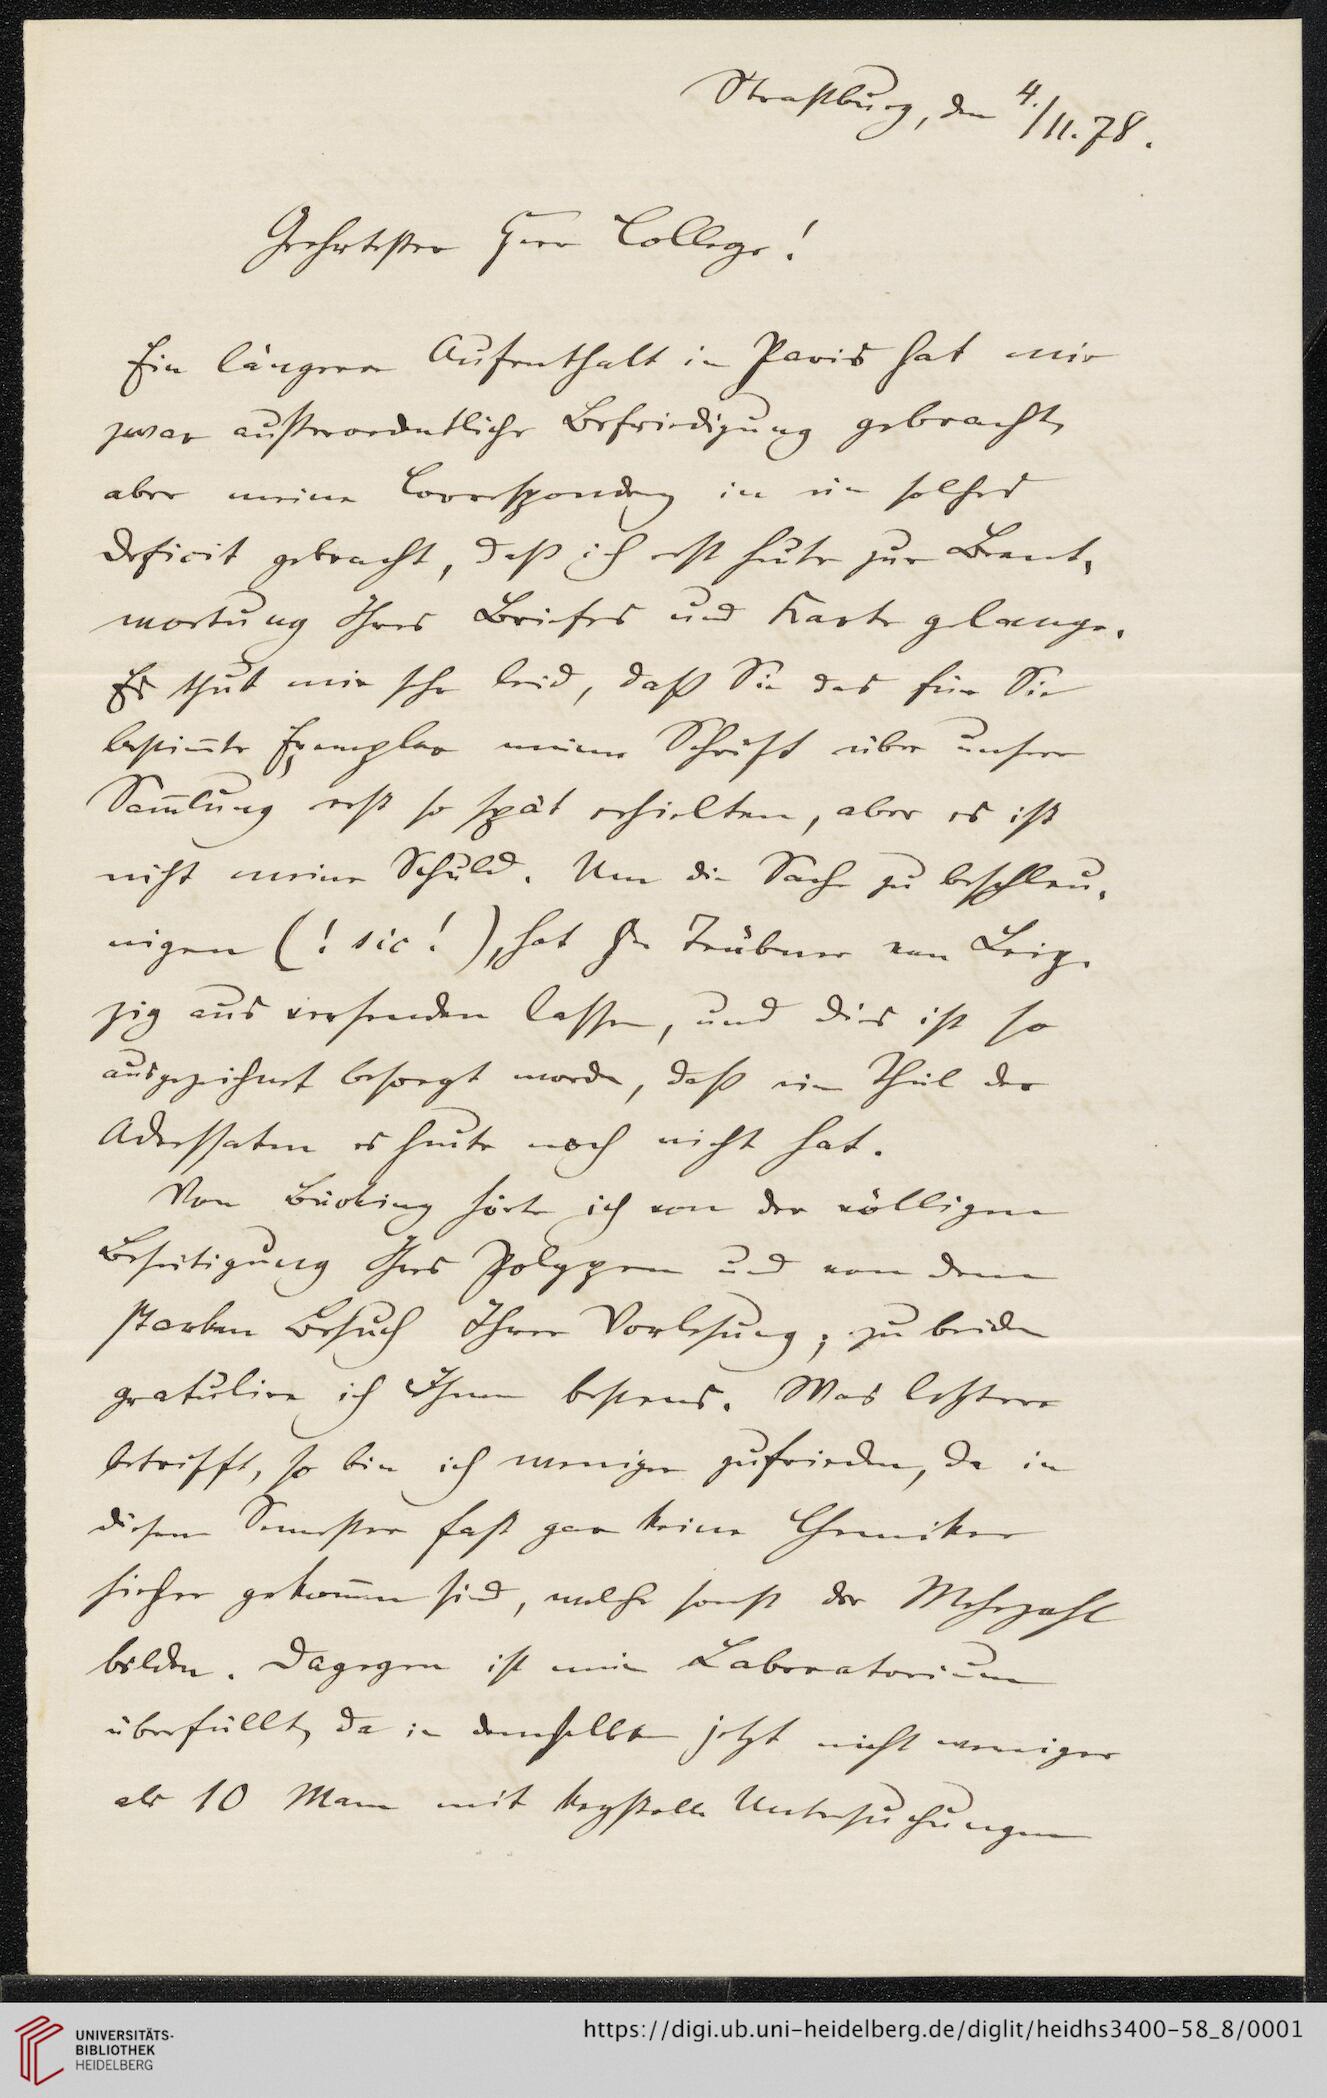 Straßburg, den 4./11. 78.
Geehrtester Herr College!
Ein längerer Aufenthalt in Paris hat mir
zwar außerordentliche Befriedigung gebracht,
aber meine Correspondenz in ein solches
Deficit gebracht, daß ich erst heute zur Beant-
wortung Ihres Briefes und Karte gelange.
Es thut mir sehr leid, daß Sie das für Sie
bestim̄te Exemplar meiner Schrift über unsere
Sam̄lung erst so spät erhielten, aber es ist
nicht meine Schuld. Um die Sache zu beschleu-
nigen (! sic! ), hat Hr Trübner von Leip-
zig aus versenden lassen, und dies ist so
ausgezeichnet besorgt worden, daß ein Theil der
Adressaten es heute noch nicht hat.
Von Bücking hörte ich von der völligen
Beseitigung Ihres Polypen und von dem
starken Besuch Ihrer Vorlesung; zu beiden
gratulire ich Ihnen bestens. Was letztere
betrifft, so bin ich weniger zufrieden, da in
diesem Semester fast gar keine Chemiker
hieher gekom̄en sind, welche sonst der Mehrzahl
bilden. Dagegen ist mein Laboratorium
überfüllt, da in demselben jetzt nicht weniger
als 10 Mann mit krystall. Untersuchungen
UNIVERSITÄTS-
BIBLIOTHEK
HEIDELBERG
https://digi.ub.uni-heidelberg.de/diglit/heidhs3400-58_8/0001